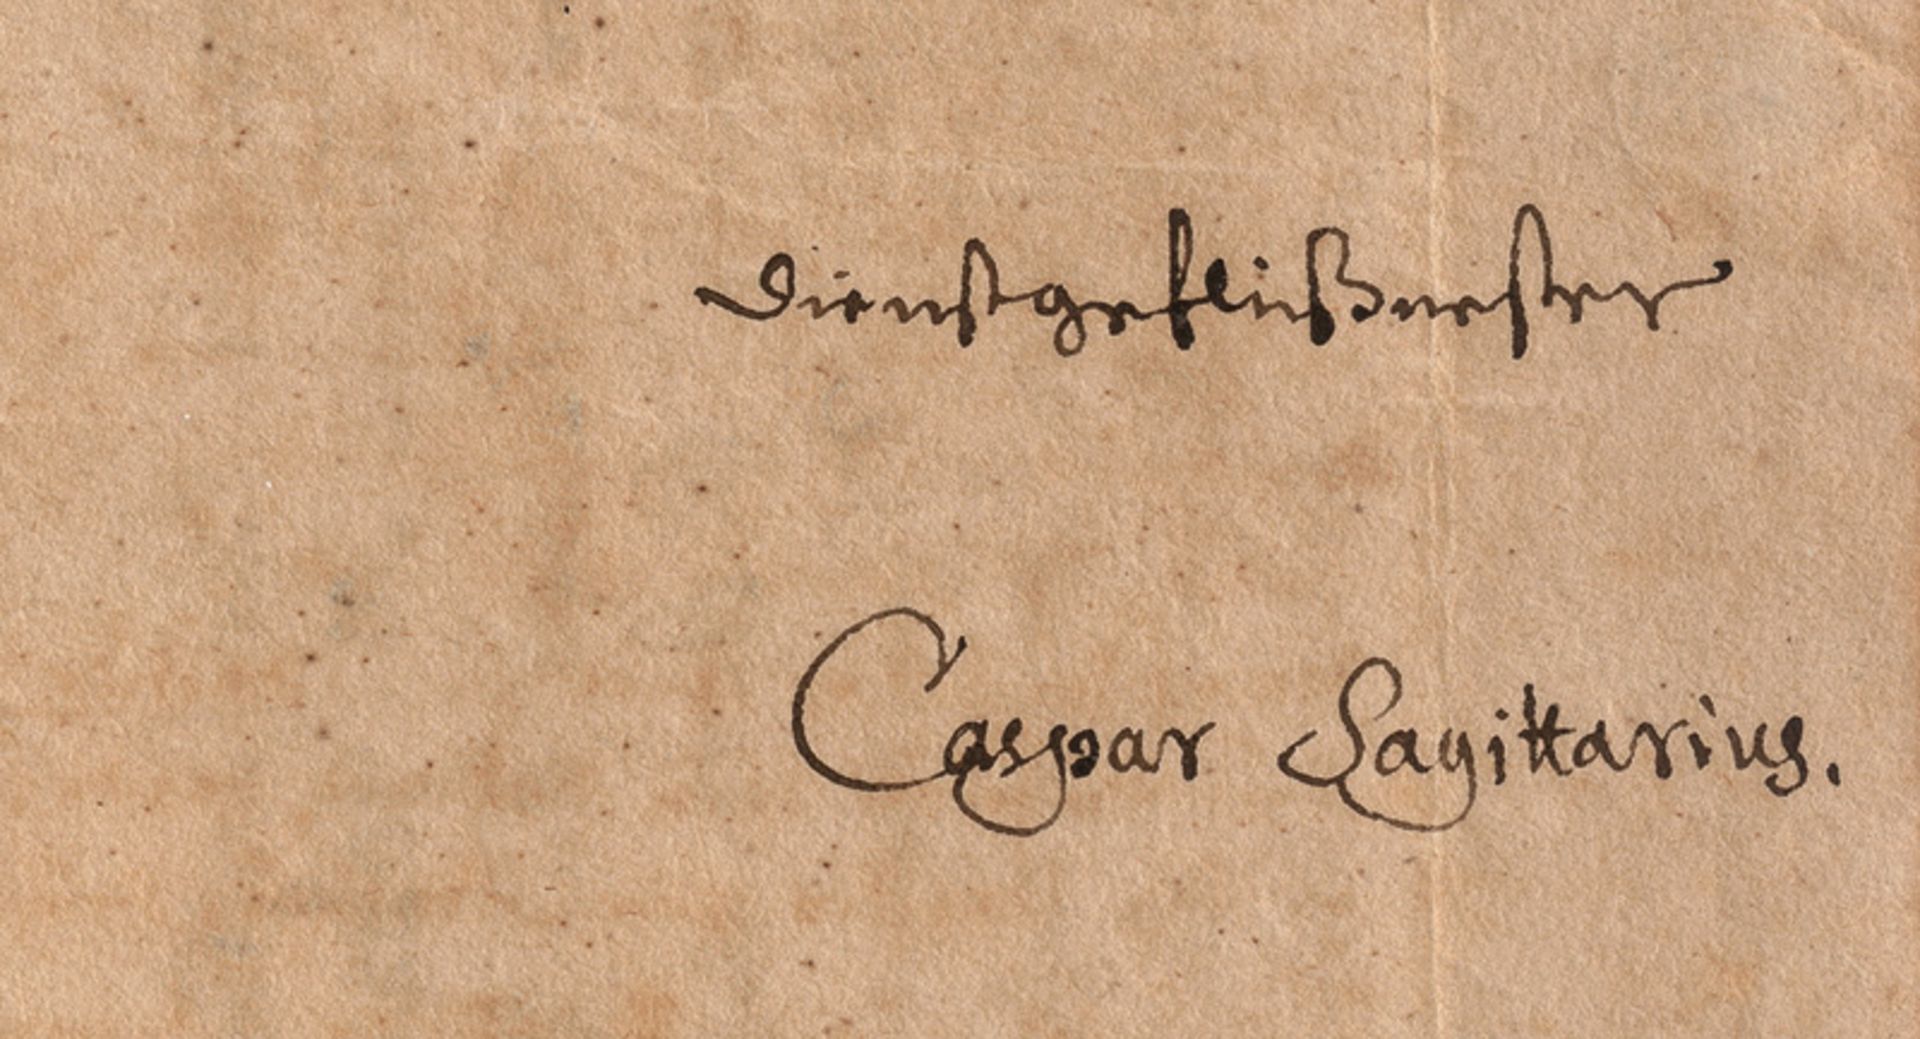 dienstgeflißnester
Caspar Sagittarius.